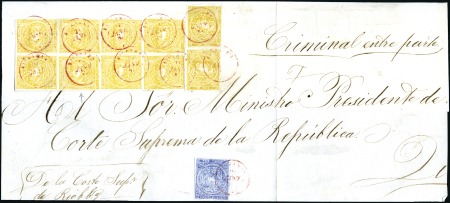 Criminal entre parte
Al Sór. Ministro Presidente de
Corte Suprema de la República
De la Corte Supr
de Riobba